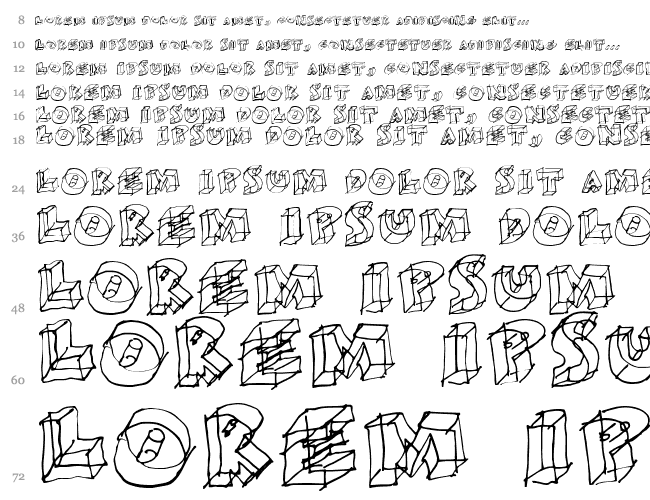 8 LOREM IPSUM DOLOR SIT AMET, CONSECTETUER ADIPISCING ELIT...
10 LOREM IPSUM DOLOR SIT AMET, CONSECTETUER ADIPISCING ELIT...
12 LOREM IPSUM DOLOR SIT AMET, CONSECTETUER ADIPISCIN
14 LOREM IPSUM DOLOR SIT AMET, CONSECTETUER
16 LOREM IPSUM DOLOR SIT AMET, CONSECTET
18 LOREM IPSUM DOLOR SIT AMET, CONSE
24 LOREM IPSUM DOLOR SIT AME
36 LOREM IPSUM DOLO
48 LOREM IPSUM
60 LOREM IPSU
72 LOREM IP